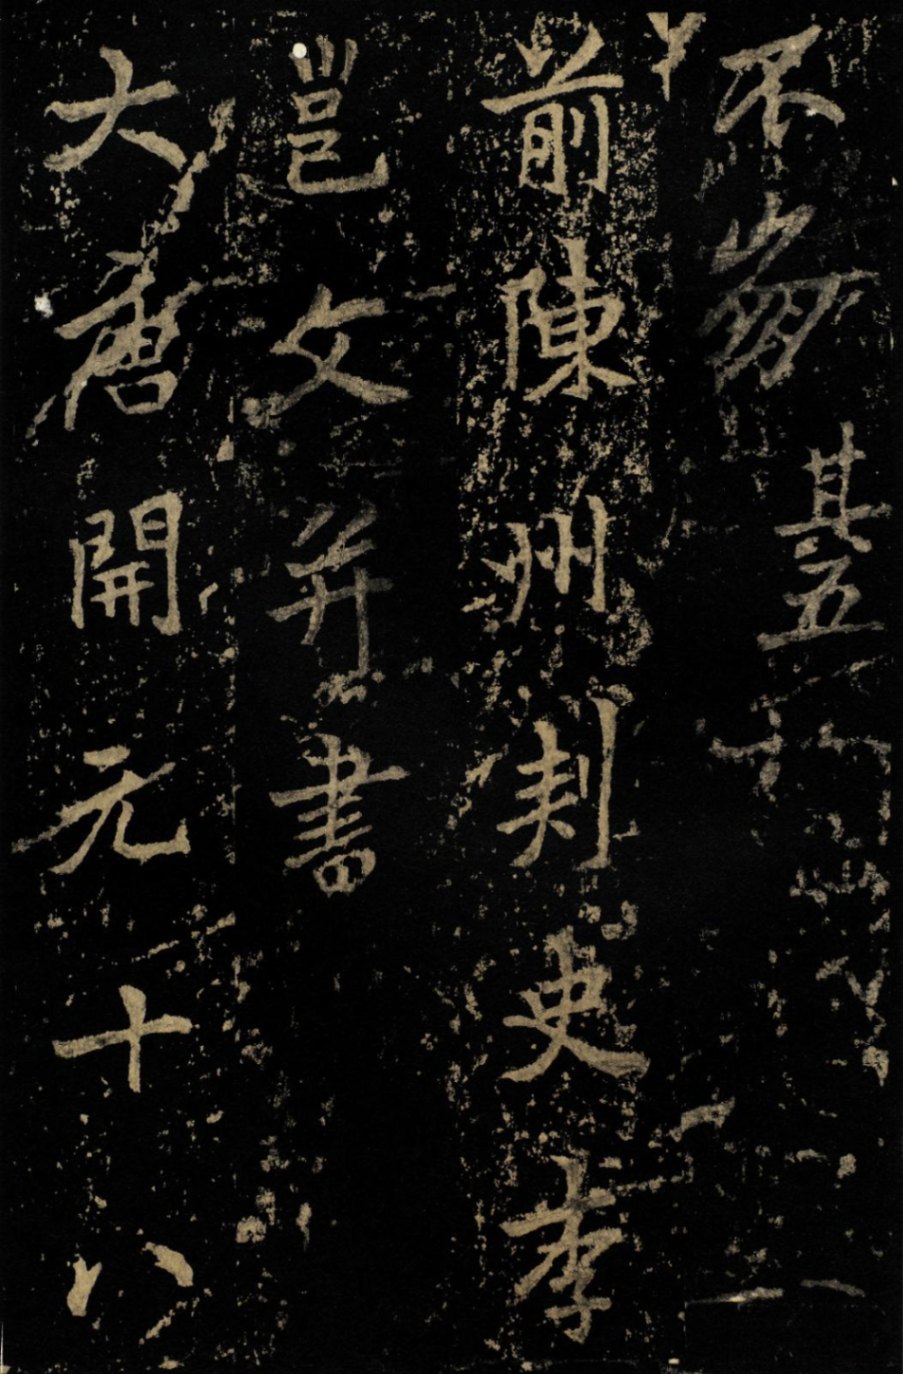 不崩其五
前陳州刺史李
邕文并書
大唐開元十八